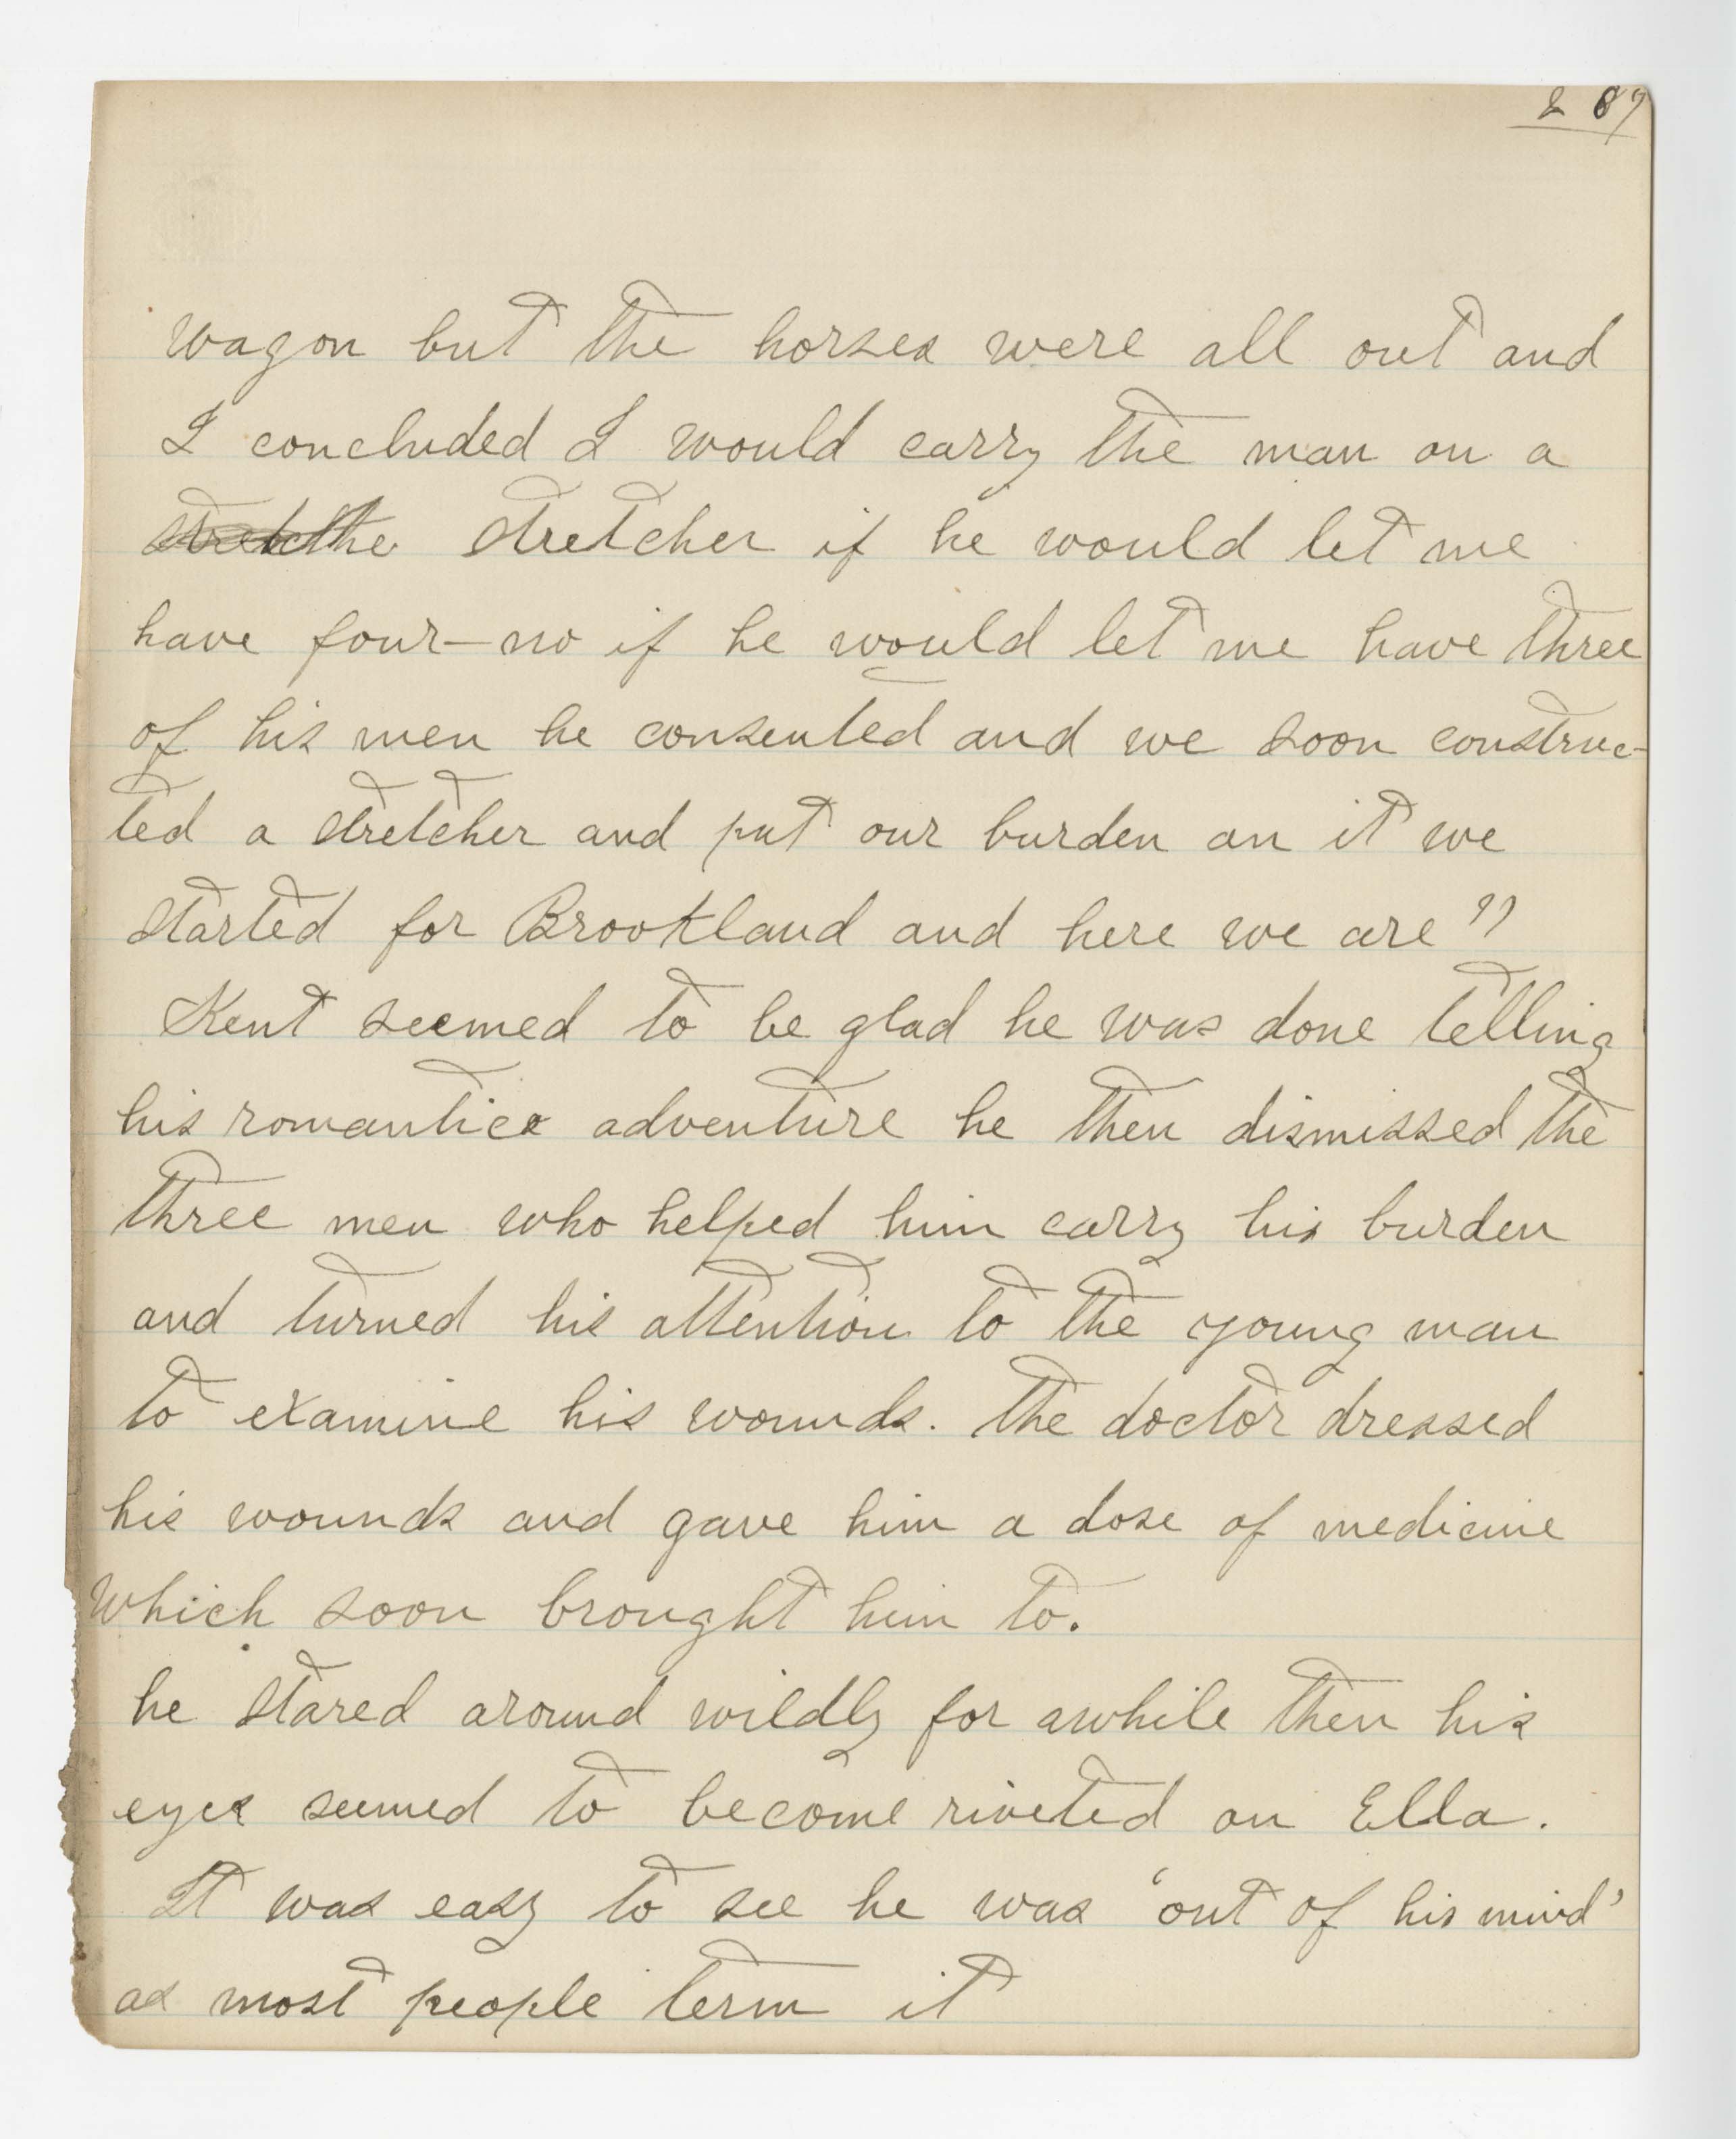 287
wagon but the horses were all out and
I concluded I would carry the man on a
stretcher if he would let me
have four—no if he would let me have three
of his men he consented and we soon construc-
ted a stretcher and put our burden on it we
started for Brookland and here we are"
Kent seemed to be glad he was done telling
his romantics adventure he then dismissed the
three men who helped him carry his burden
and turned his attention to the young man
to examine his wounds. the doctor dressed
his wounds and gave him a dose of medicine
which soon brought him to.
he stared around wildly for awhile then his
eyes seemed to become riveted on Ella.
It was easy to see he was 'out of his mind'
as most people term it